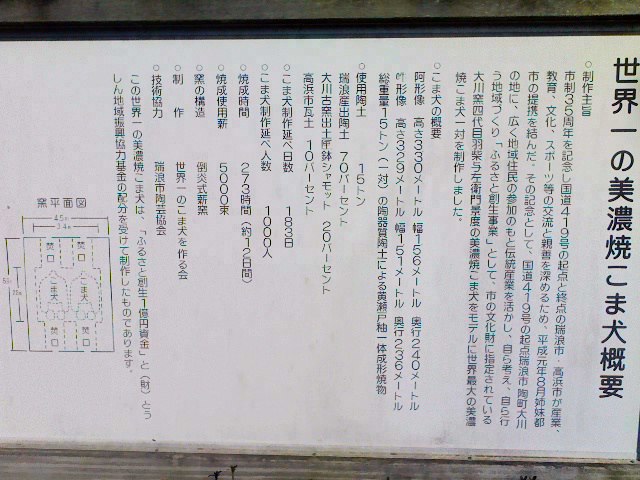 世界一の美濃焼こま犬概要
○制作主旨
市制35周年を記念し国道419号の起点と終点の瑞浪市・高浜市が産業、
教育、文化、スポーツ等の交流と親善を深めるため、平成元年8月姉妹都
市の提携を結んだ。その記念として、国道419号の起点瑞浪市陶町大川
の地に、広く地域住民の参加のもと伝統産業を活かし、自ら考え、自ら行
う地域づくり「ふるさと創生事業」として、市の文化財に指定されている
大川窯四代目羽柴与左衛門景度の美濃焼こま犬をモデルに世界最大の美濃
焼こま犬一対を制作しました。
○こま犬の概要
阿形像 高さ330メートル 幅156メートル 奥行240メートル
吽形像 高さ329メートル 幅151メートル 奥行236メートル
総重量15トン(一対)の陶器質陶土による黄瀬戸釉一体成形焼物
○使用陶土 15トン
瑞浪産出陶土 70パーセント
大川古窯出土匣鉢シャモット 20パーセント
高浜市瓦土 10パーセント
○こま犬制作延べ日数 183日
○こま犬制作延べ人数 1000人
○焼成時間 273時間(約12日間)
○焼成使用薪 5000束
○窯の構造 倒炎式薪窯
○制作 世界一のこま犬を作る会
○技術協力 瑞浪市陶芸協会
この世界一の美濃焼こま犬は、「ふるさと創生1億円資金」と(財)とう
しん地域振興協力基金の配分を受けて制作したものであります。
窯平面図
焚口
焚口
こま犬
こま犬
焚口
焚口